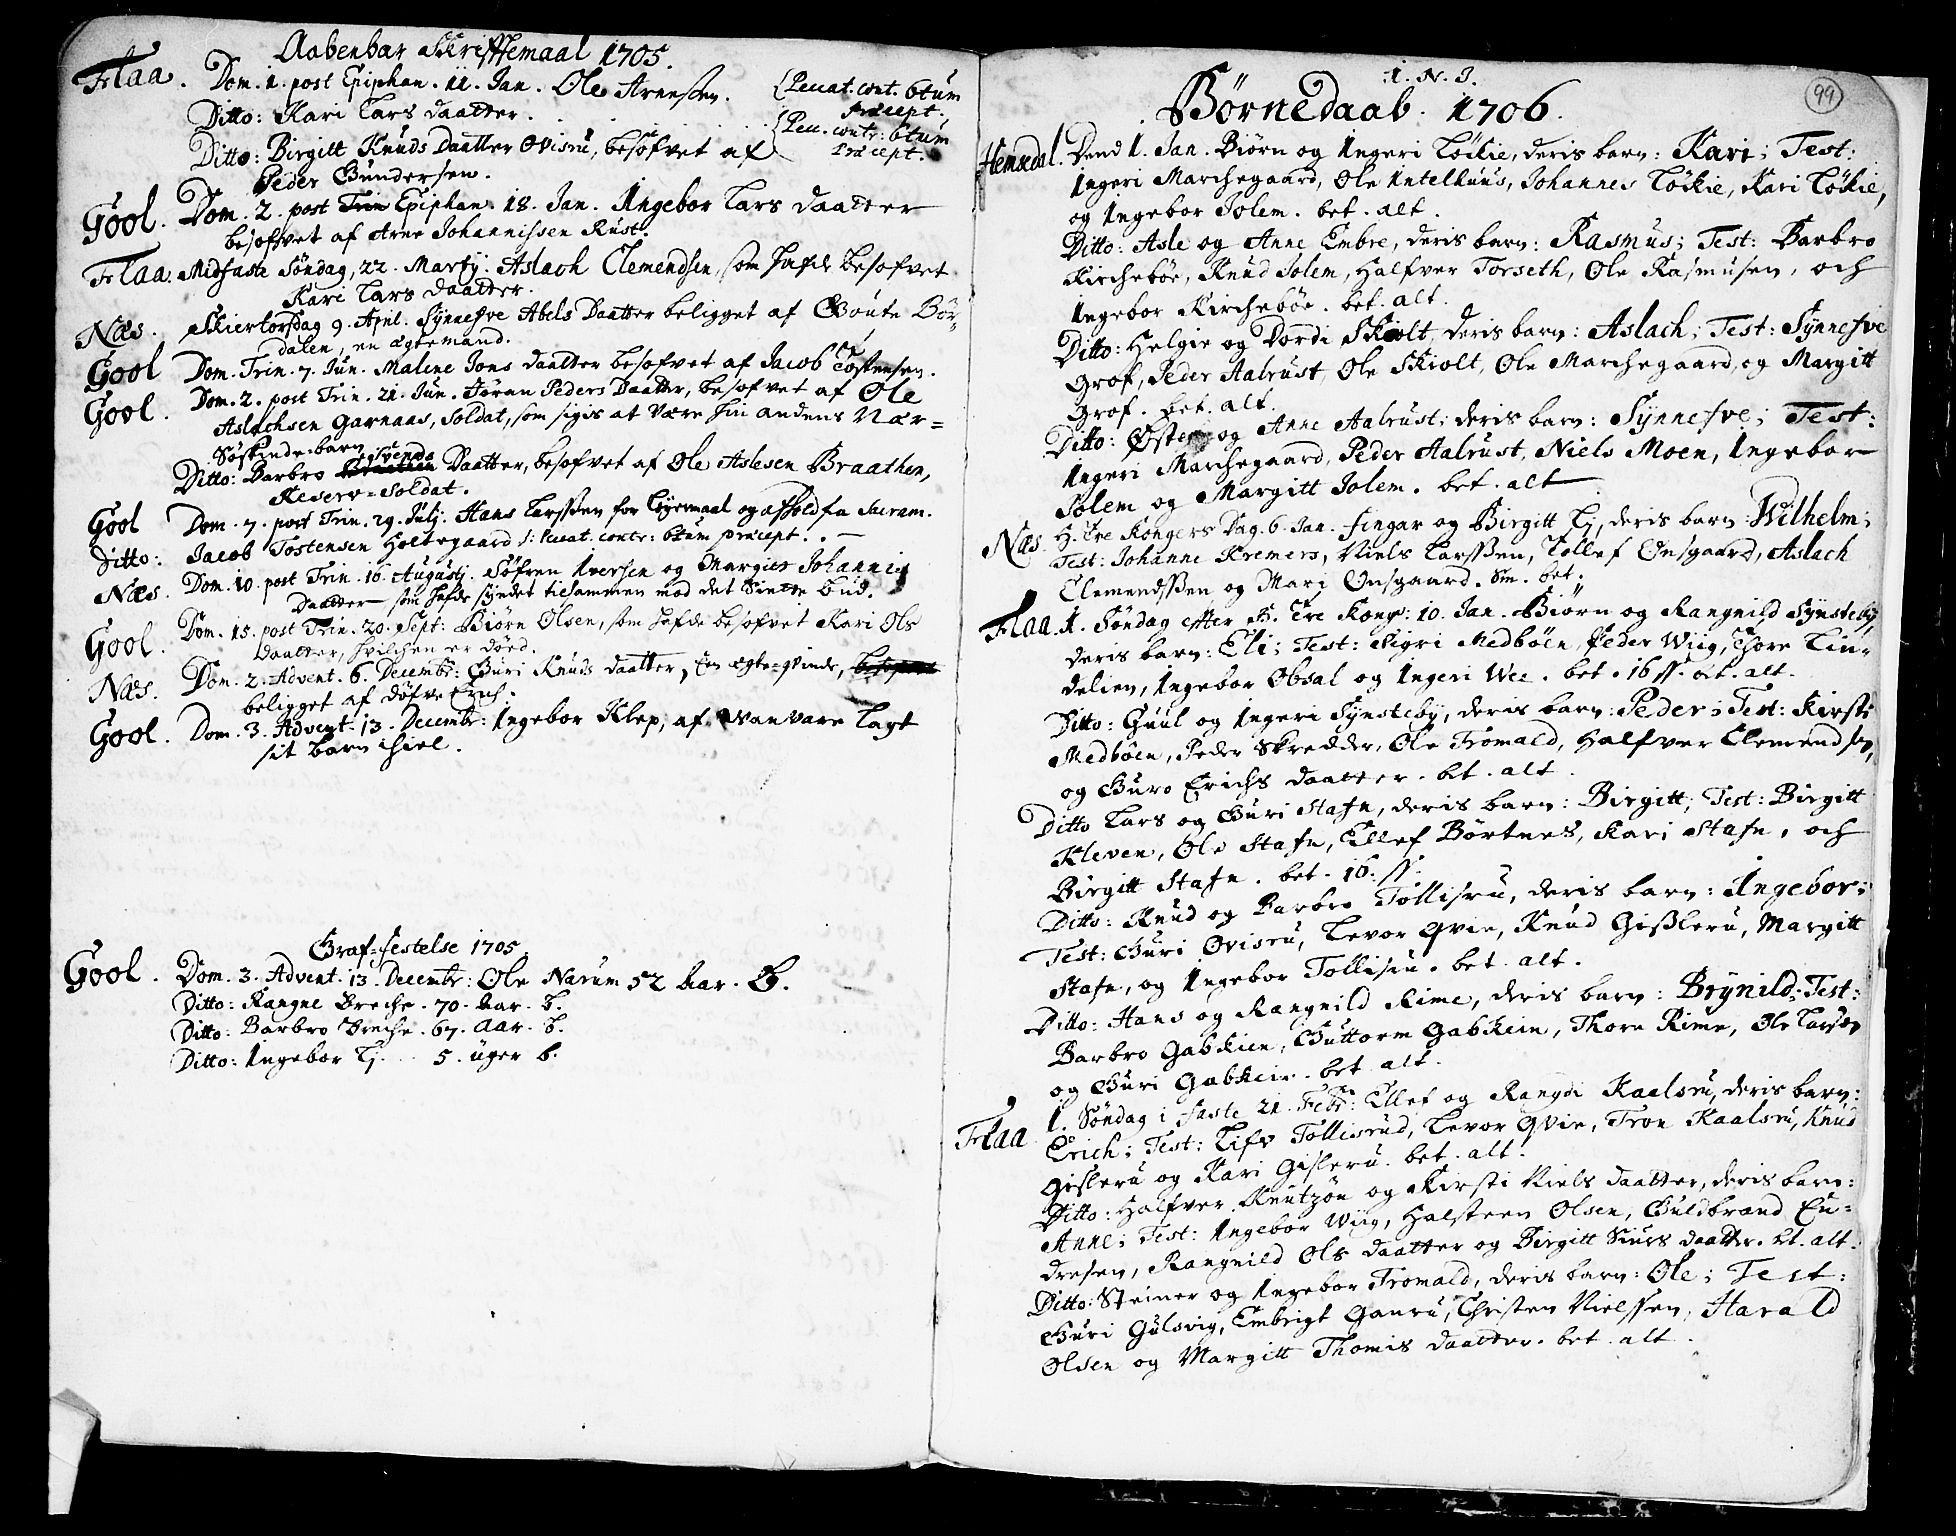 Aabenbar Skrifftemaal 1705.
Flaa. Dom. 1. post Epiphan. 11. Jan. Ole Arnessen. (Peccat. cont. 6tum
præcept.
Ditto: Kari Lars daatter. (Pecc. contr: 6tum
Ditto: Birgitt Knuds Daatter Øvisrü, besofvet af Præcept.
Peder Gundersen.
Gool. Dom. 2. post Trin Epiphan. 18. Jan. Ingebor Lars daatter
besofvet af Arne Johannissen Rust.
Flaa. Midfaste Søndag, 22. Martij. Aslach Clemendsen, som hafde besofvet
Kari Lars daatter.
Næs. Skiertorsdag 9. April. Synnefve Abels Daatter beligget af Goute Bør-
dalen, en ægtemand.
Gool Dom. Trin. 7. Jun. Malene Jons daatter besofvet af Jacob Tostensen.
Gool. Dom. 2. post Trin. 21. Jun. Jøran Peders Daatter, besofvet af Ole
Aslachsen Garnaas, Soldat, som sigis at være hin andens Nær-
Søskinde-barn.
Svends
Ditto: Barbro Daatter, besofvet af Ole Aslesen Braathen,
Reserv-Soldat.
Gool Dom. 7. post Trin. 29. Julij. Hans Larssen for Leyermaal og afhold fra Sacram.
Ditto: Jacob Tostensen Holtegaard /: Peccat. contr: 6tum præcept. . —
Næs. Dom. 10. post Trin. 16. Augustj. Søfren Iversen og Margitt Johannis
Daatter som hafde syndet tilsammen mod det Siette bud.
Gool. Dom. 15. post Trin. 20. Sept: Biørn Olsen, som hafde besofvet Kari Ols
Daatter, hvilchen er død.
Næs. Dom. 2. Advent. 6. Decembr: Guri Knuds daatter, En ægte-qvinde,
beligget af døfve Erich.
Gool. Dom. 3. Advent. 13. Decembr: Ingebor Klep, af Vanvare lagt
sit barn ihiel.
Graf-festelse 1705.
Gool. Dom. 3. Advent. 13. Decembr: Ole Narum 52 Aar. B.
Ditto: Rangne Breche. 70. Aar. b.
Ditto: Barbro Breche. 67. Aar. b.
Ditto: Ingebor Lj. . . 5. uger b.
I. N. J.
99
Børnedaab. 1706.
Hemsedal. Dend 1. Jan. Biørn og Ingeri Løkie, deris barn: Kari; Test:
Ingeri Marchegaard, Ole Intelhuus, Johannes Løkie, Kari Løkie,
og Ingebor Solem. bet. alt.
Ditto: Asle og Anne Embre, deris barn: Rasmus; Test: Barbro
Kirchebøe, Knud Solem, Halfver Torseth, Ole Rasmusen, och
Ingebor Kirchebøe. bet. alt.
Ditto: Helgie og Dordi Skiolt, deris barn: Aslach; Test: Synnefve
Grøf, Peder Aalrust, Ole Skiolt, Ole Marchegaard, og Margitt
Grøf. bet. alt.
Ditto: Østen og Anne Aalrust; deris barn: Synnefve; Test:
Ingeri Marchegaard, Peder Aalrust, Niels Moen, Ingebor
Solem og Margitt Solem. bet. alt
Næs. H. Tre Kongers Dag. 6. Jan. Fingar og Birgitt Lj, deris barn Wilhelm;
Test: Johanne Kremers, Niels Larssen, Tollef Onsgaard, Aslach
Clemendssen og Mari Onsgaard. Sm. bet.
Flaa. 1. Søndag efter H. Tre Kong: 10. Jan. Biørn og Rangnild Synsteby,
deris barn: Eli; Test: Sigri Medbøen, Peder Wiig, Thore Lin-
delien, Ingebor Obsal og Ingeri Wee. bet. 16 ss. bet. alt.
Ditto: Guul og Ingeri Synsteby, deris barn: Peder; Test: Kirsti
Medbøen, Peder Skredder, Ole Tromald, Halfver Clemendsen,
og Guro Erichs daatter. bet. alt.
Ditto Lars og Guri Stafn, deris barn: Birgitt; Test: Birgitt
Kleven, Ole Stafn, Ellef Børtnes, Kari Stafn, och
Birgitt Stafn. bet. 16. ss.
Ditto: Knud og Barbro Tollisrü, deris barn: Ingebor;
Test: Guri Øvisrü, Levor Qvie, Knud Gislerü, Margitt
Stafn, og Ingebor Tollisrü. bet. alt.
Ditto: Hans og Rangnild Rime, deris barn: Brynild; Test:
Barbro Gabkien, Guttorm Gabkein, Thore Rime, Ole Larsen
og Guri Gabkein. bet. alt.
Flaa 1. Søndag i faste 21. Febr: Ellef og Rangdi Kaalsrü, deris barn:
Erich; Test: Lifv Tollisrud, Levor Qvie, Tron Kaalsrü, Knud
Gislerü og Kari Gislerü. bet. alt.
Ditto: Halfver Knutzøn og Kirsti Niels daatter, deris barn:
Anne; Test: Ingebor Wiig, Halsteen Olsen, Guldbrand En-
dresen, Rangnild Ols daatter og Birgitt Siurs daatter. bet. alt.
Ditto: Steiner og Ingebor Tromald, deris barn: Ole; Test:
Guri Gulsvig, Embrigt Ganrü, Christen Nielssen, Harald
Olsen og Margitt Thomis daatter. bet. alt.